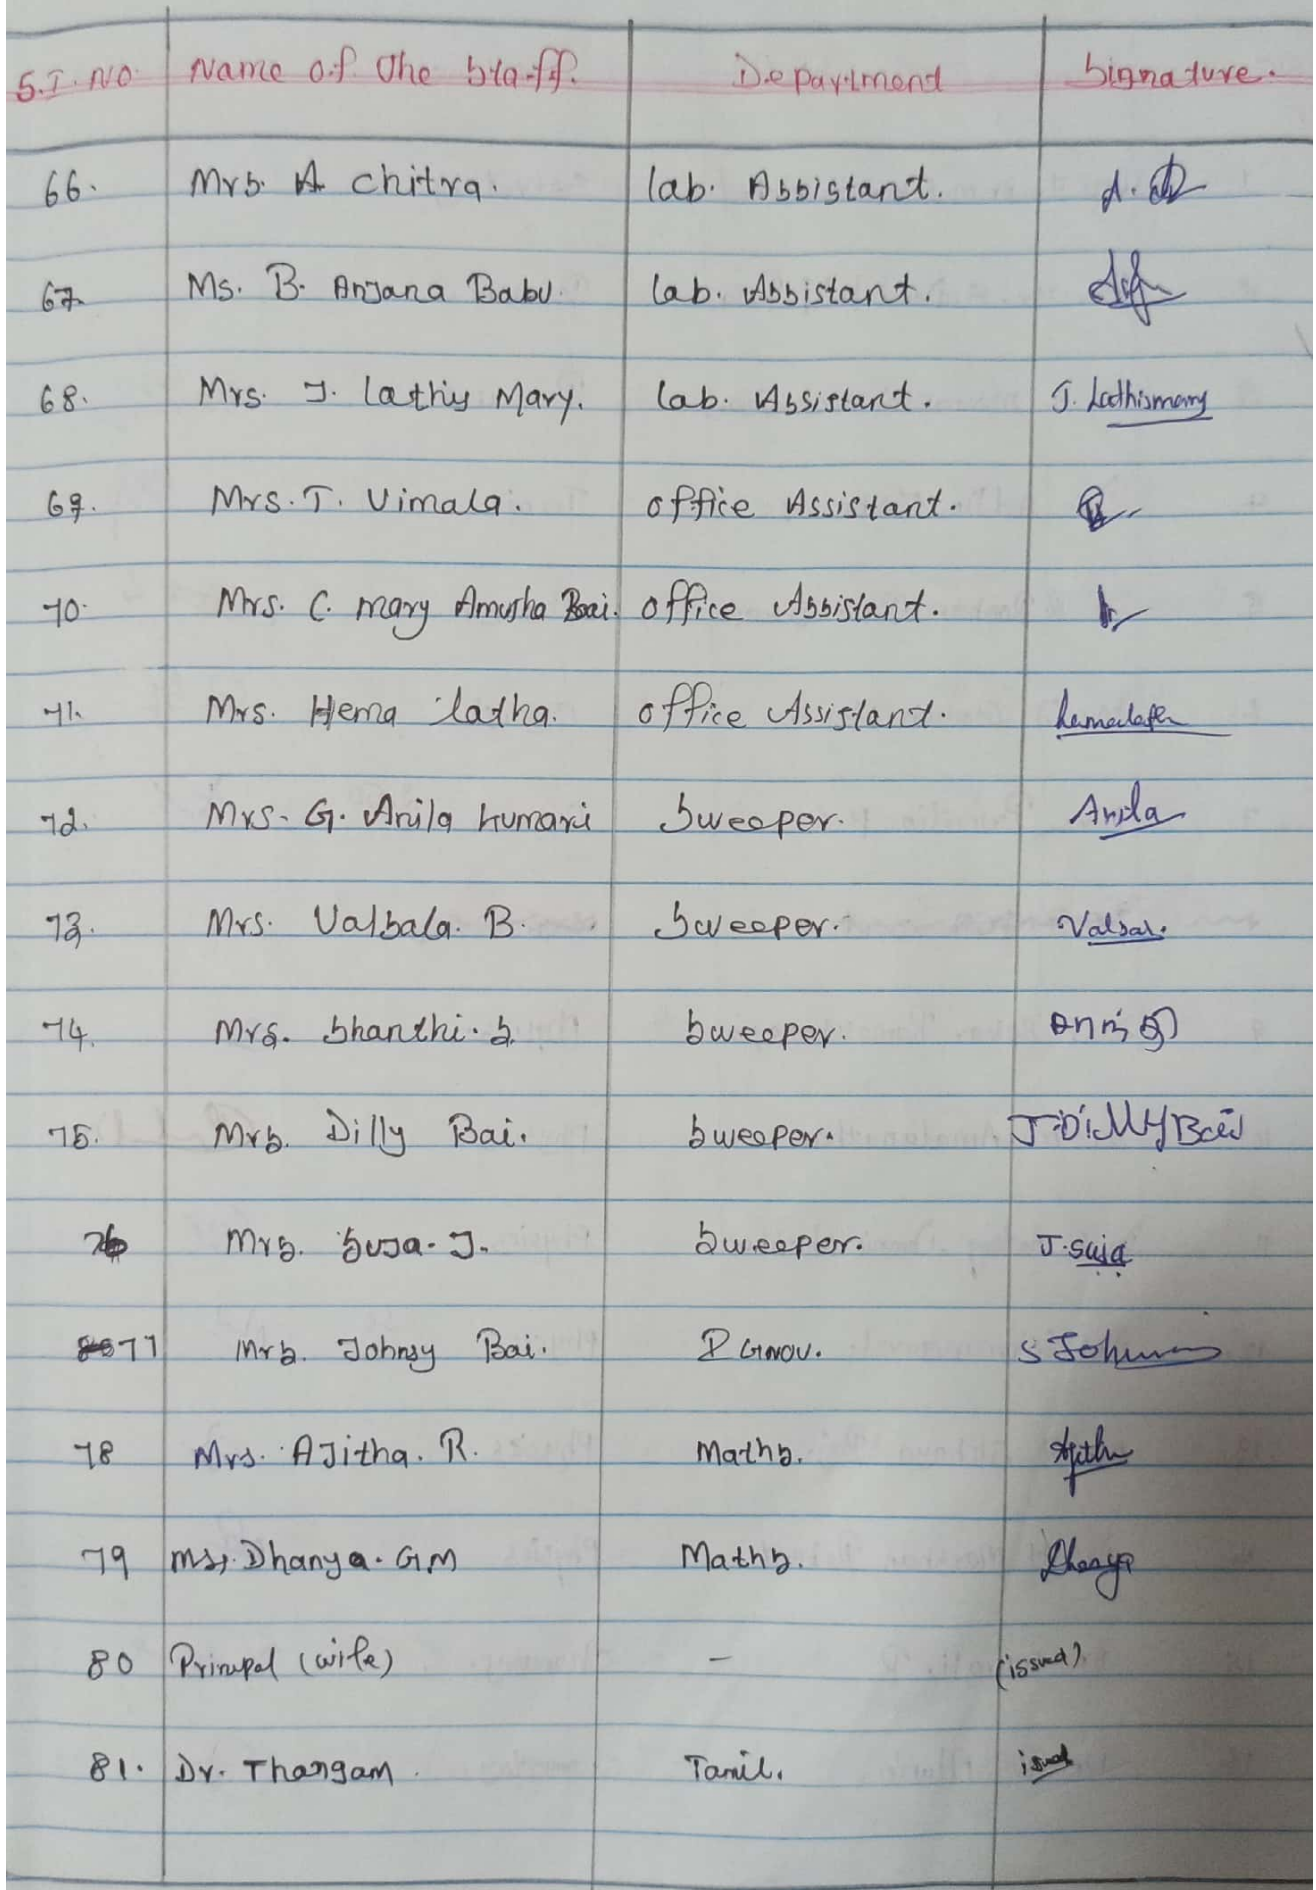 S.I. NO Name of the Staff. Department Signature.
66. Mrs. A Chitra. lab. Assistant.
67. Ms. B. Anjana Babu. lab. Assistant.
68. Mrs. J. lathis Mary. lab. Assistant. J. Lathismary
69. Mrs. T. Vimala. office Assistant.
70. Mrs. C. mary Amusha Bai. office Assistant.
71. Mrs. Hema latha. office Assistant. hemalatha
72. Mrs. G. Anila kumari Sweeper. Anila
73. Mrs. Valsala. B. Sweeper. Valsar.
74. Mrs. Shanthi. S. Sweeper. சாந்தி
75. Mrs. Dilly Bai. Sweeper. J.DillyBai
76 Mrs. Suja. J. Sweeper. J.suja
77 Mrs. Johnsy Bai. S
78 Mrs. AJitha. R. Maths. Ajitha
79 Ms. Dhanya. G.M Maths. Dhanya
80 Prinipal (wife) - (issued)
81. Dr. Thangam. Tamil. issued